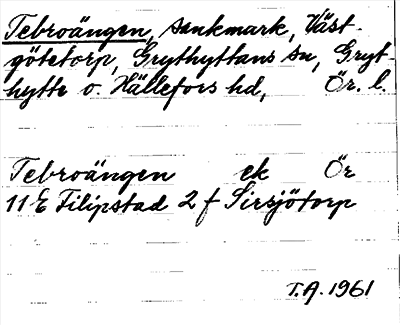 Tebroängen, sankmark, Väst-
götetorp, Grythyttans sn, Gryt-
hytte o. Hällefors hd, Ör. l.
Tebroängen ek Ör
11 E Filipstad 2 f Sirsjötorp
T.A. 1961